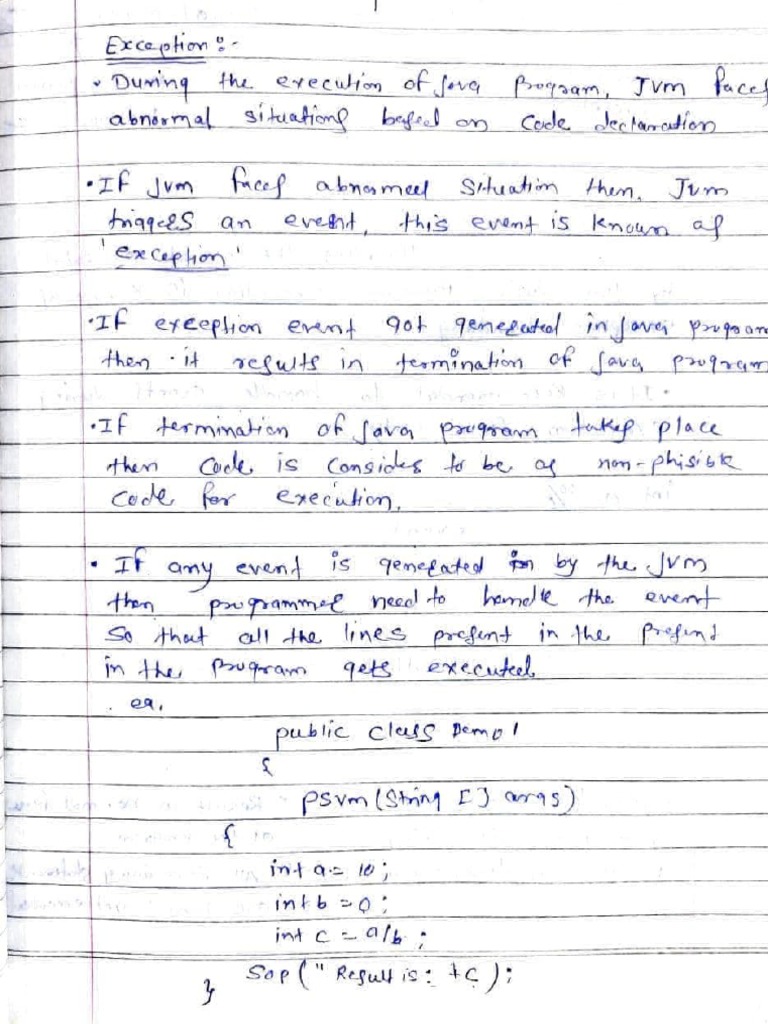 Exception :-
• During the execution of Java Program, JVM faces
abnormal situations based on Code declaration
• If Jvm faces abnormal Situation then, Jvm
triggers an event, this event is known as
'exception'
• If exception event got generated in Java program
then it results in termination of Java program
• If termination of Java program takes place
then Code is Consides to be as non-phisible
Code for execution.
• If any event is generated by the JVM
then programmer need to handle the event
So that all the lines present in the present
in the program gets executed
eg.
public class Demo1
{
psvm (String [] args)
{
int a = 10;
int b = 0;
int c = a/b;
Sop (" Result is: +c);
}